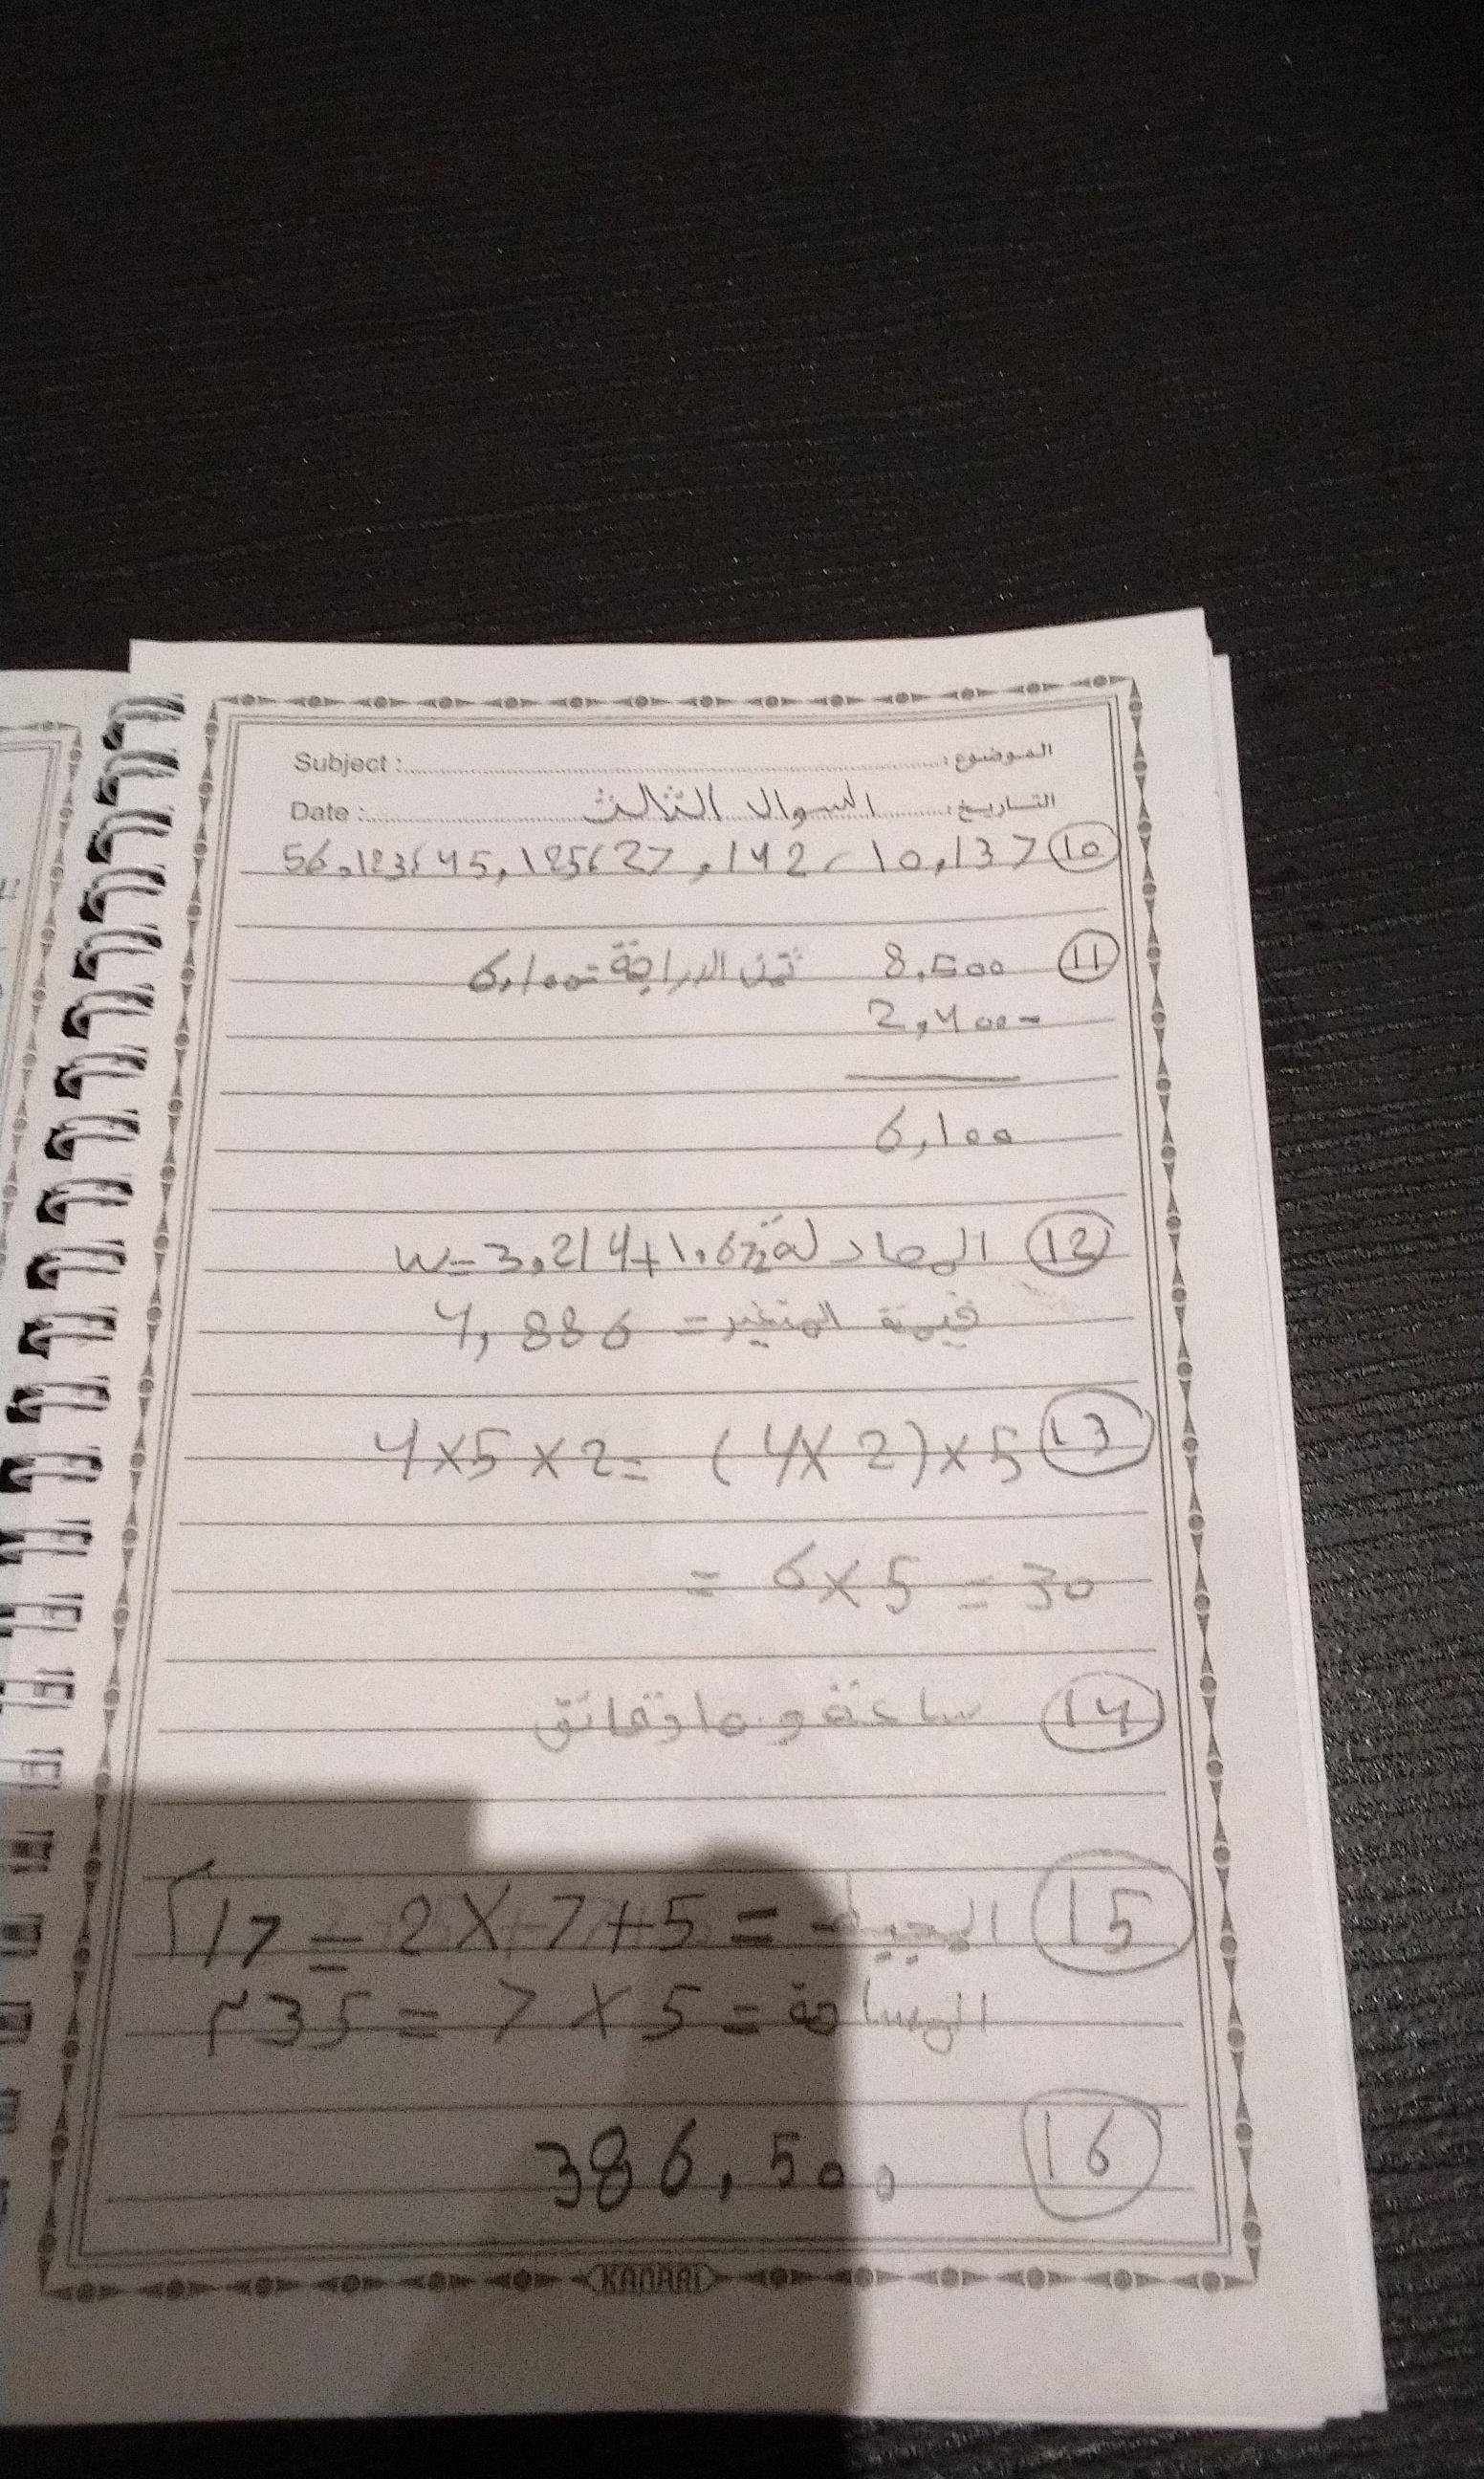 Subject : الموضوع :
Date : التاريخ : السوال الثالث
⑩ 56,123، 45,125، 27,142، 10,137
⑪ 8,500 ثمن الدراجة = 6,100
2,400 -
6,100
⑫ المعادلة: w = 3,214 + 1,672
قيمة المتغير = 4,886
⑬ 4 × 5 × 2 = (4 × 2) × 5
= 6 × 5 = 30
⑭ ساعة و 10 دقائق
⑮ المحيط = 2 × 7 + 5 = 17 م
المساحة = 5 × 7 = 35 م
⑯ 386,500
KANARI